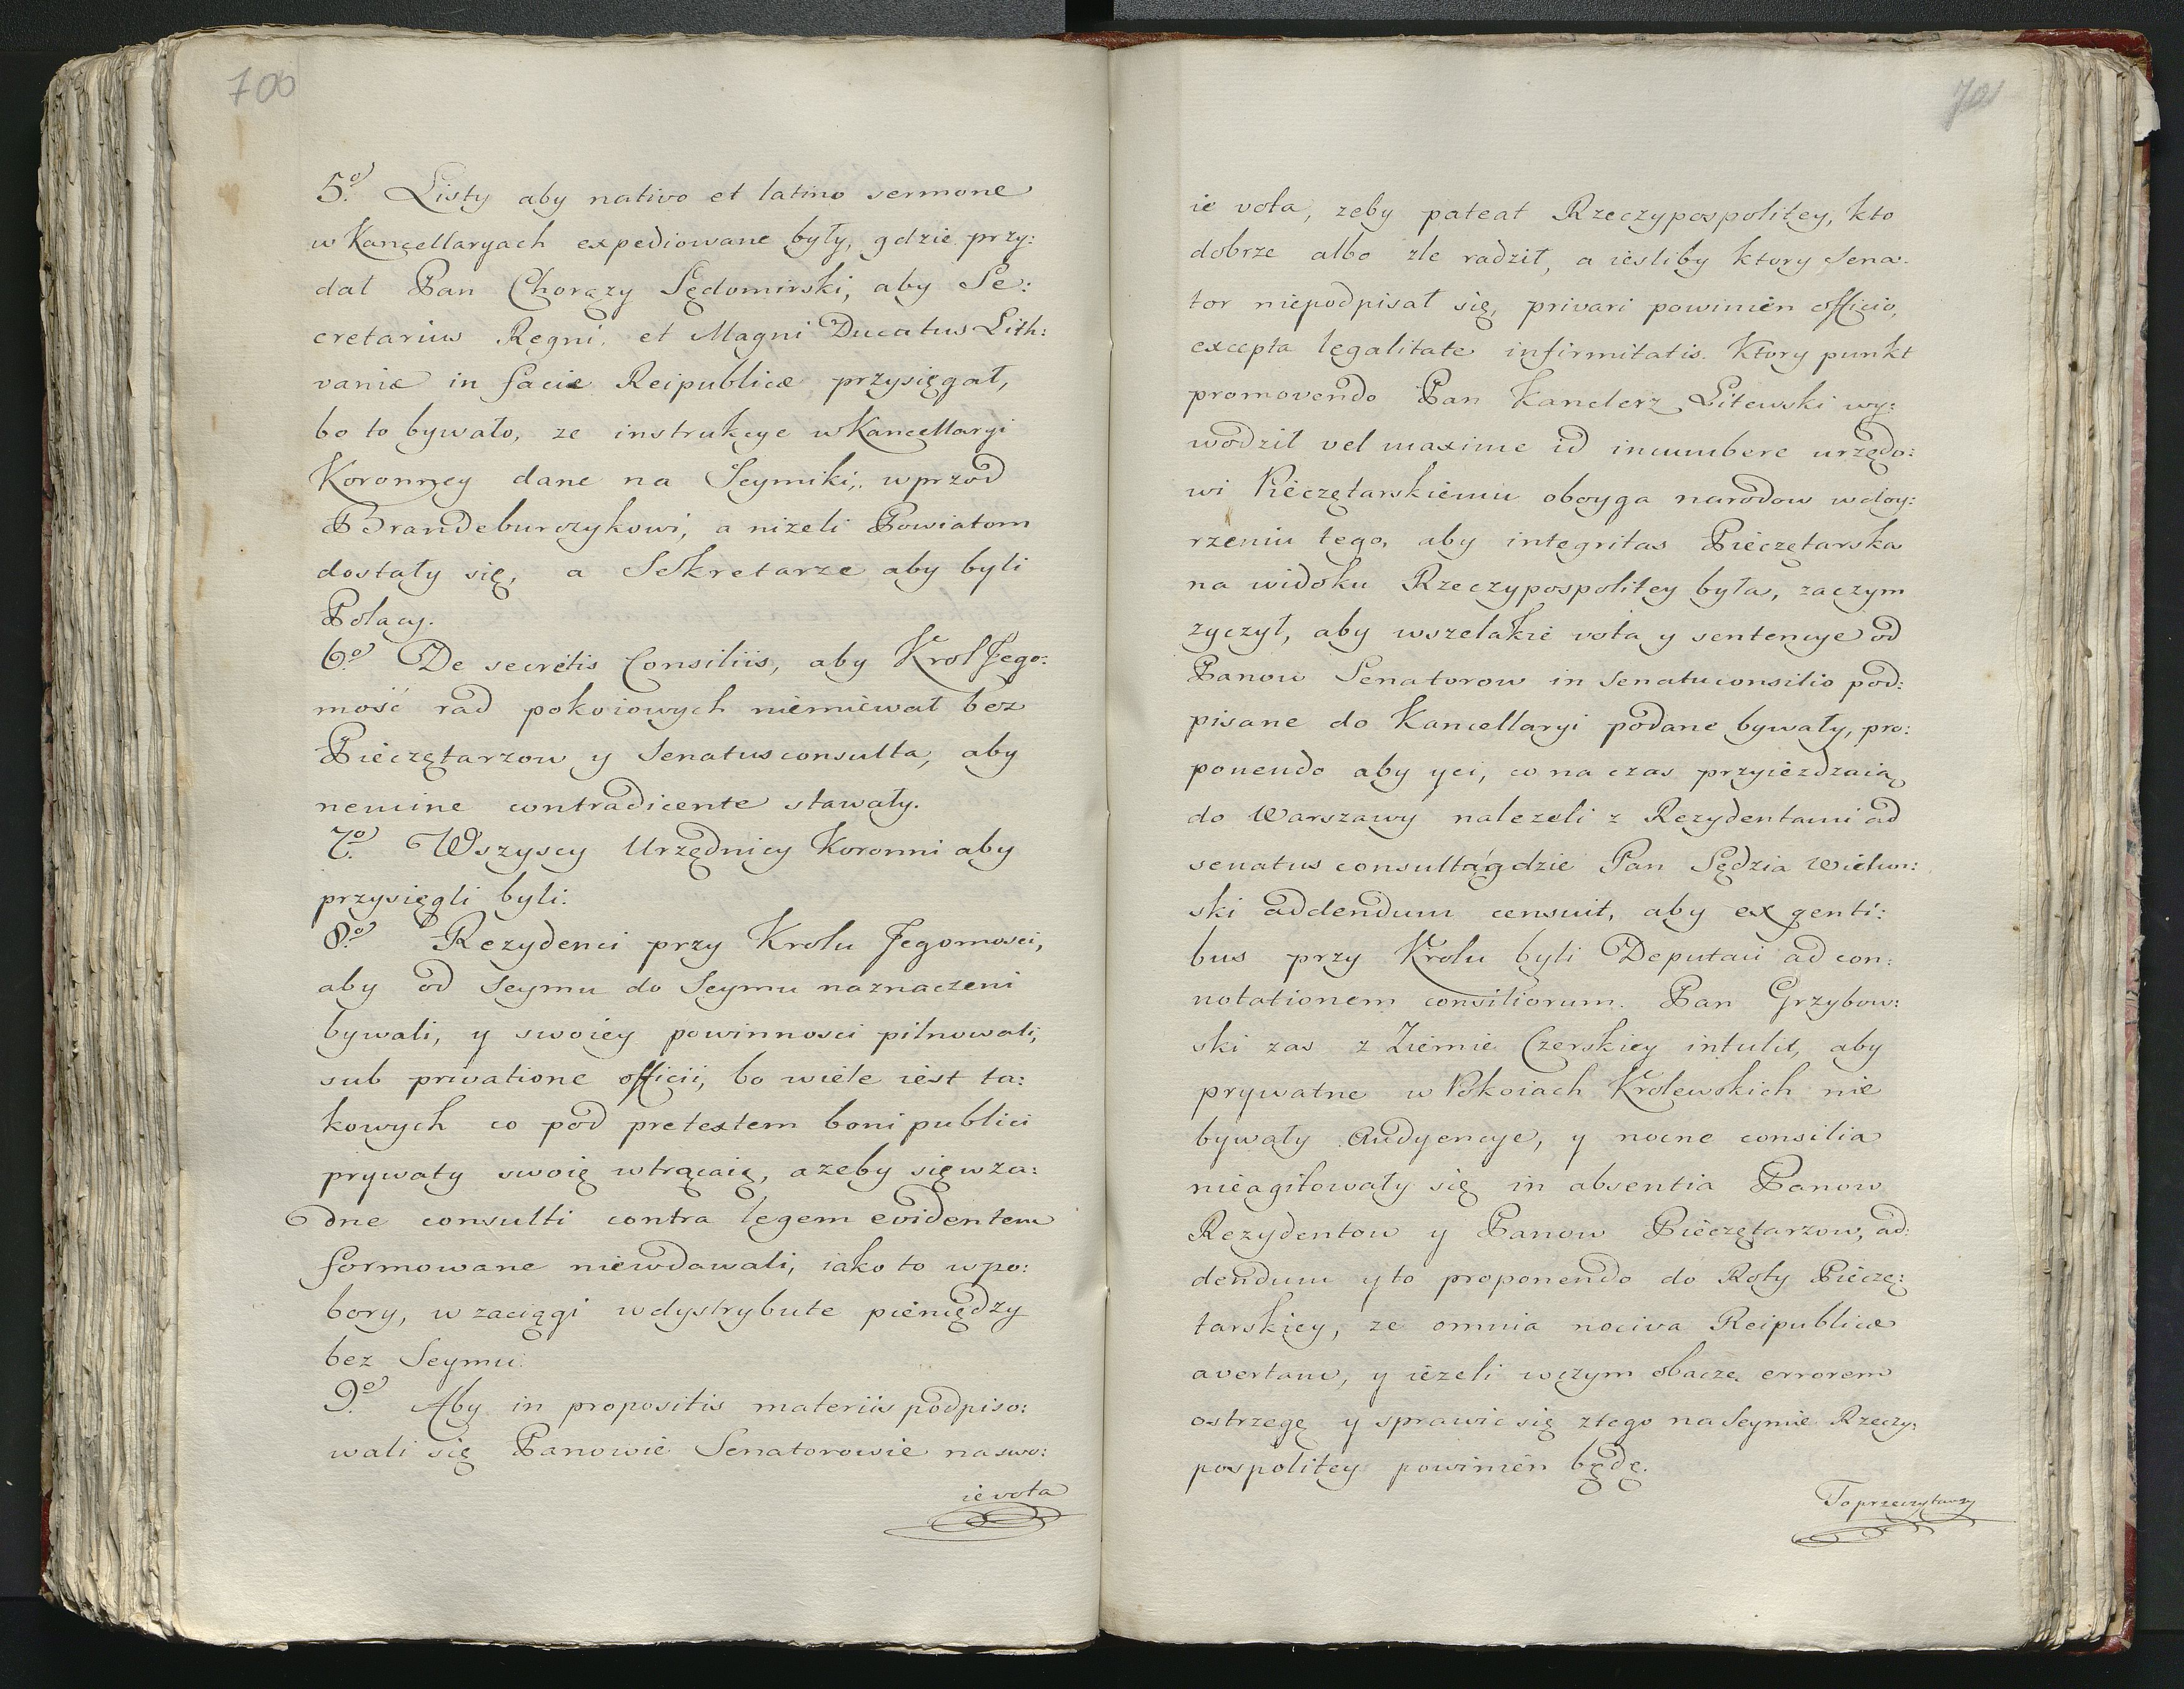 700
5.o Listy aby nativo et latino sermone
w Kancellaryach expediowane były, gdzie przy:
dał Pan Chorązy Sędomirski, aby Se:
cretarius Regni, et Magni Ducatus Lith:
vaniæ in facie Reipublicæ przysięgał,
bo to bywało, ze instrukcye w Kancellaryi
Koronney dane na Seymiki, wprzod
Brandeburczykowi, a nizeli Powiatom
dostały się, a Sekretarze aby byli
Polacy.
6.o De secretis Consiliis, aby Krol Jego:
mość rad pokoiowych niemiewał bez
Pieczętarzow y Senatus consulta, aby
nemine contradicente stawały.
7.o Wszyscy Urzędnicy Koronni aby
przysięgli byli.
8.o Rezydenci przy Krolu Jegomosci,
aby od Seymu do Seymu naznaczeni
bywali, y swoiey powinnosci pilnowali,
sub privatione officii, bo wiele iest ta:
kowych co pod pretextem boni publici
prywaty swoię wtrącaią, a zeby się w za:
dne consulti contra legem evidentem
formowane niewdawali, iako to w po:
bory, w zaciągi w dystrybute pieniędzy
bez Seymu.
9.o Aby in propositis materiis podpiso:
wali się Panowie Senatorowie na swo:
ie vota
701
ie vota, zeby pateat Rzeczypospolitey, kto
dobrze albo zle radził, a iesliby ktory Sena:
tor niepodpisał się, privari powinien officio,
excepta legalitate infirmitatis. Ktory punkt
promovendo Pan Kanclerz Litewski wy:
wodził vel maxime id incumbere urzędo:
wi Pieczętarskiemu oboyga narodow w doy:
rzeniu tego, aby integritas Pieczętarska
na widoku Rzeczypospolitey była, zaczym
zyczył, aby wszelakie vota y sentencye od
Panow Senatorow in Senatuconsilio pod:
pisane do Kancellaryi podane bywały, pro:
ponendo aby y ci, co na czas przyiezdzaią
do Warszawy nalezeli z Rezydentami ad
senatus consulta, gdzie Pan Sędzia Wielun:
ski addendum censuit, aby ex genti:
bus przy Krolu byli Deputaci ad con:
notationem consiliorum. Pan Grzybow:
ski zas z Ziemie Czerskiey intulit, aby
prywatne w Pokoiach Krolewskich nie
bywały Audyencye, y nocne consilia
nieagitowały się in absentia Panow
Rezydentow y Panow Pieczętarzow, ad:
dendum y to proponendo do Roty Pieczę:
tarskiey, ze omnia nociva Reipublicæ
avertam, y iezeli w czym obaczę errorem
ostrzegę y sprawic się z tego na Seymie Rzeczy:
pospolitey powinien będę.
To przeczytawszy